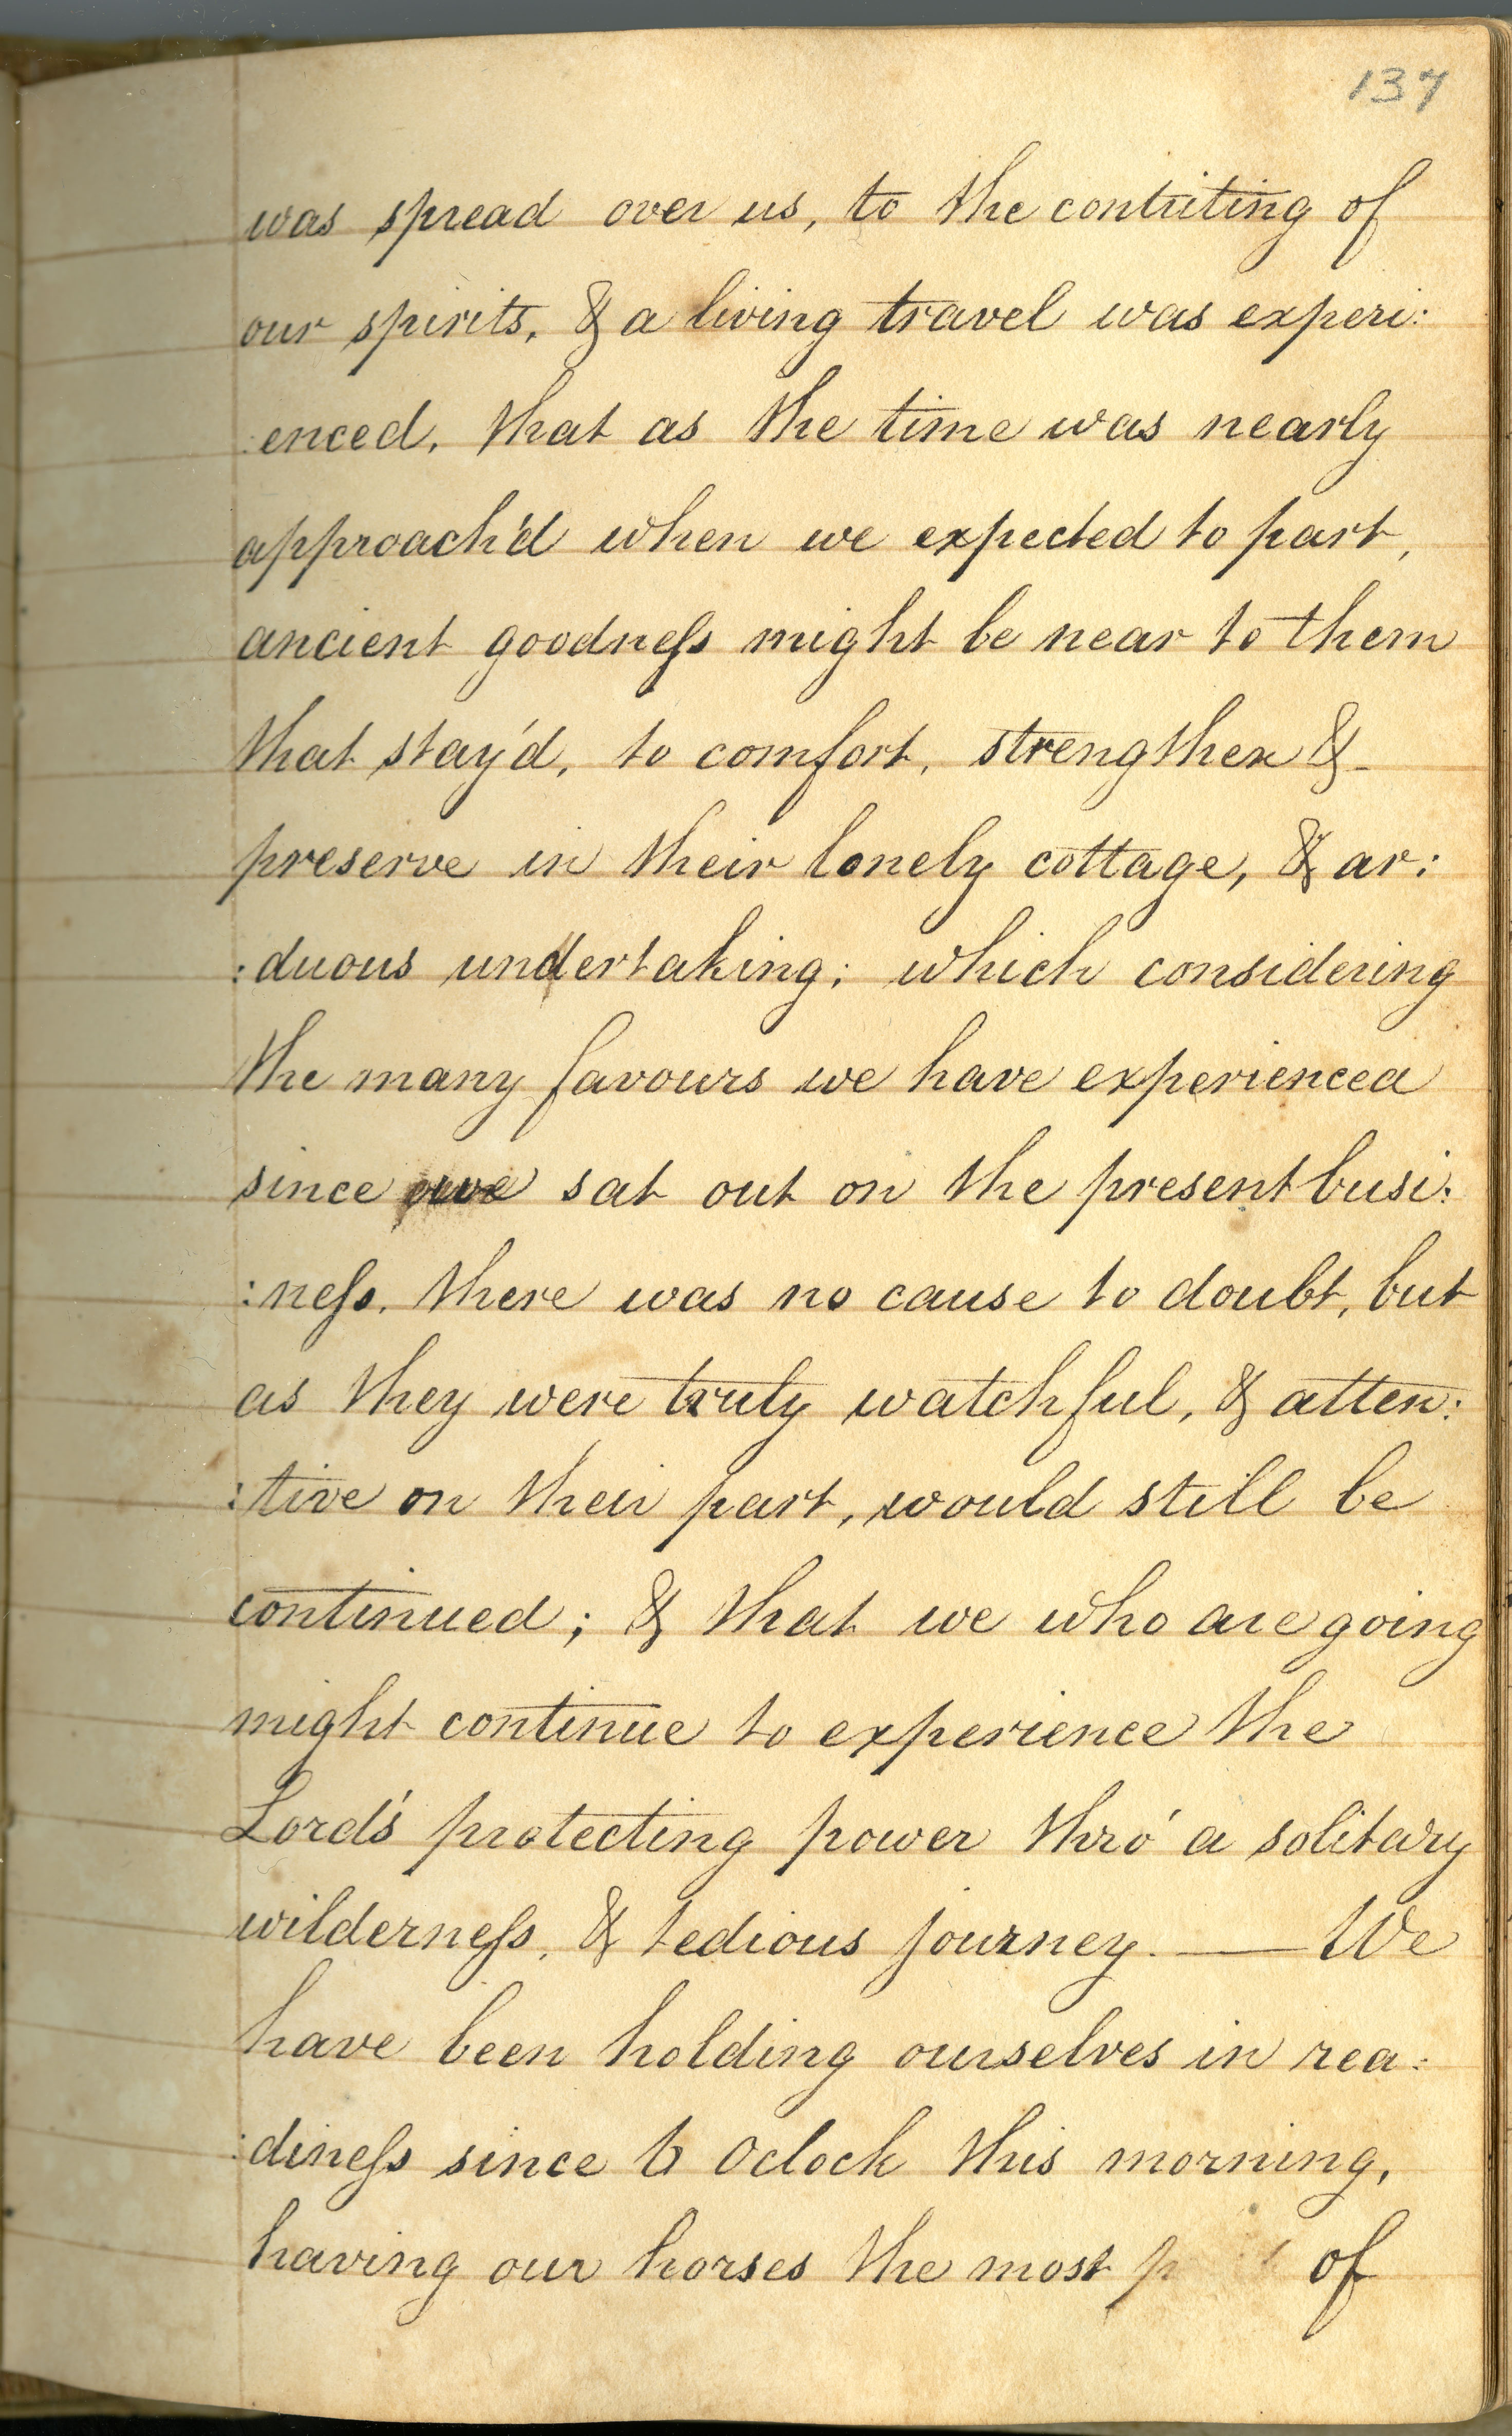 137
was spread over us, to the contriting of
our spirits, & a living travel was experi:
:enced, that as the time was nearly
approach'd when we expected to part,
ancient goodneſs might be near to them
that stay'd, to comfort, strengthen &
preserve in their lonely cottage, & ar:
:duous undertaking; which considering
the many favours we have experienced
since we sat out on the present busi:
:neſs, there was no cause to doubt, but
as they were truly watchful, & atten:
:tive on their part, would still be
continued; & that we who are going
might continue to experience the
Lord's protecting power thro' a solitary
wilderneſs, & tedious journey. — We
have been holding ourselves in rea:
:dineſs since 6 Oclock this morning,
having our horses the most of